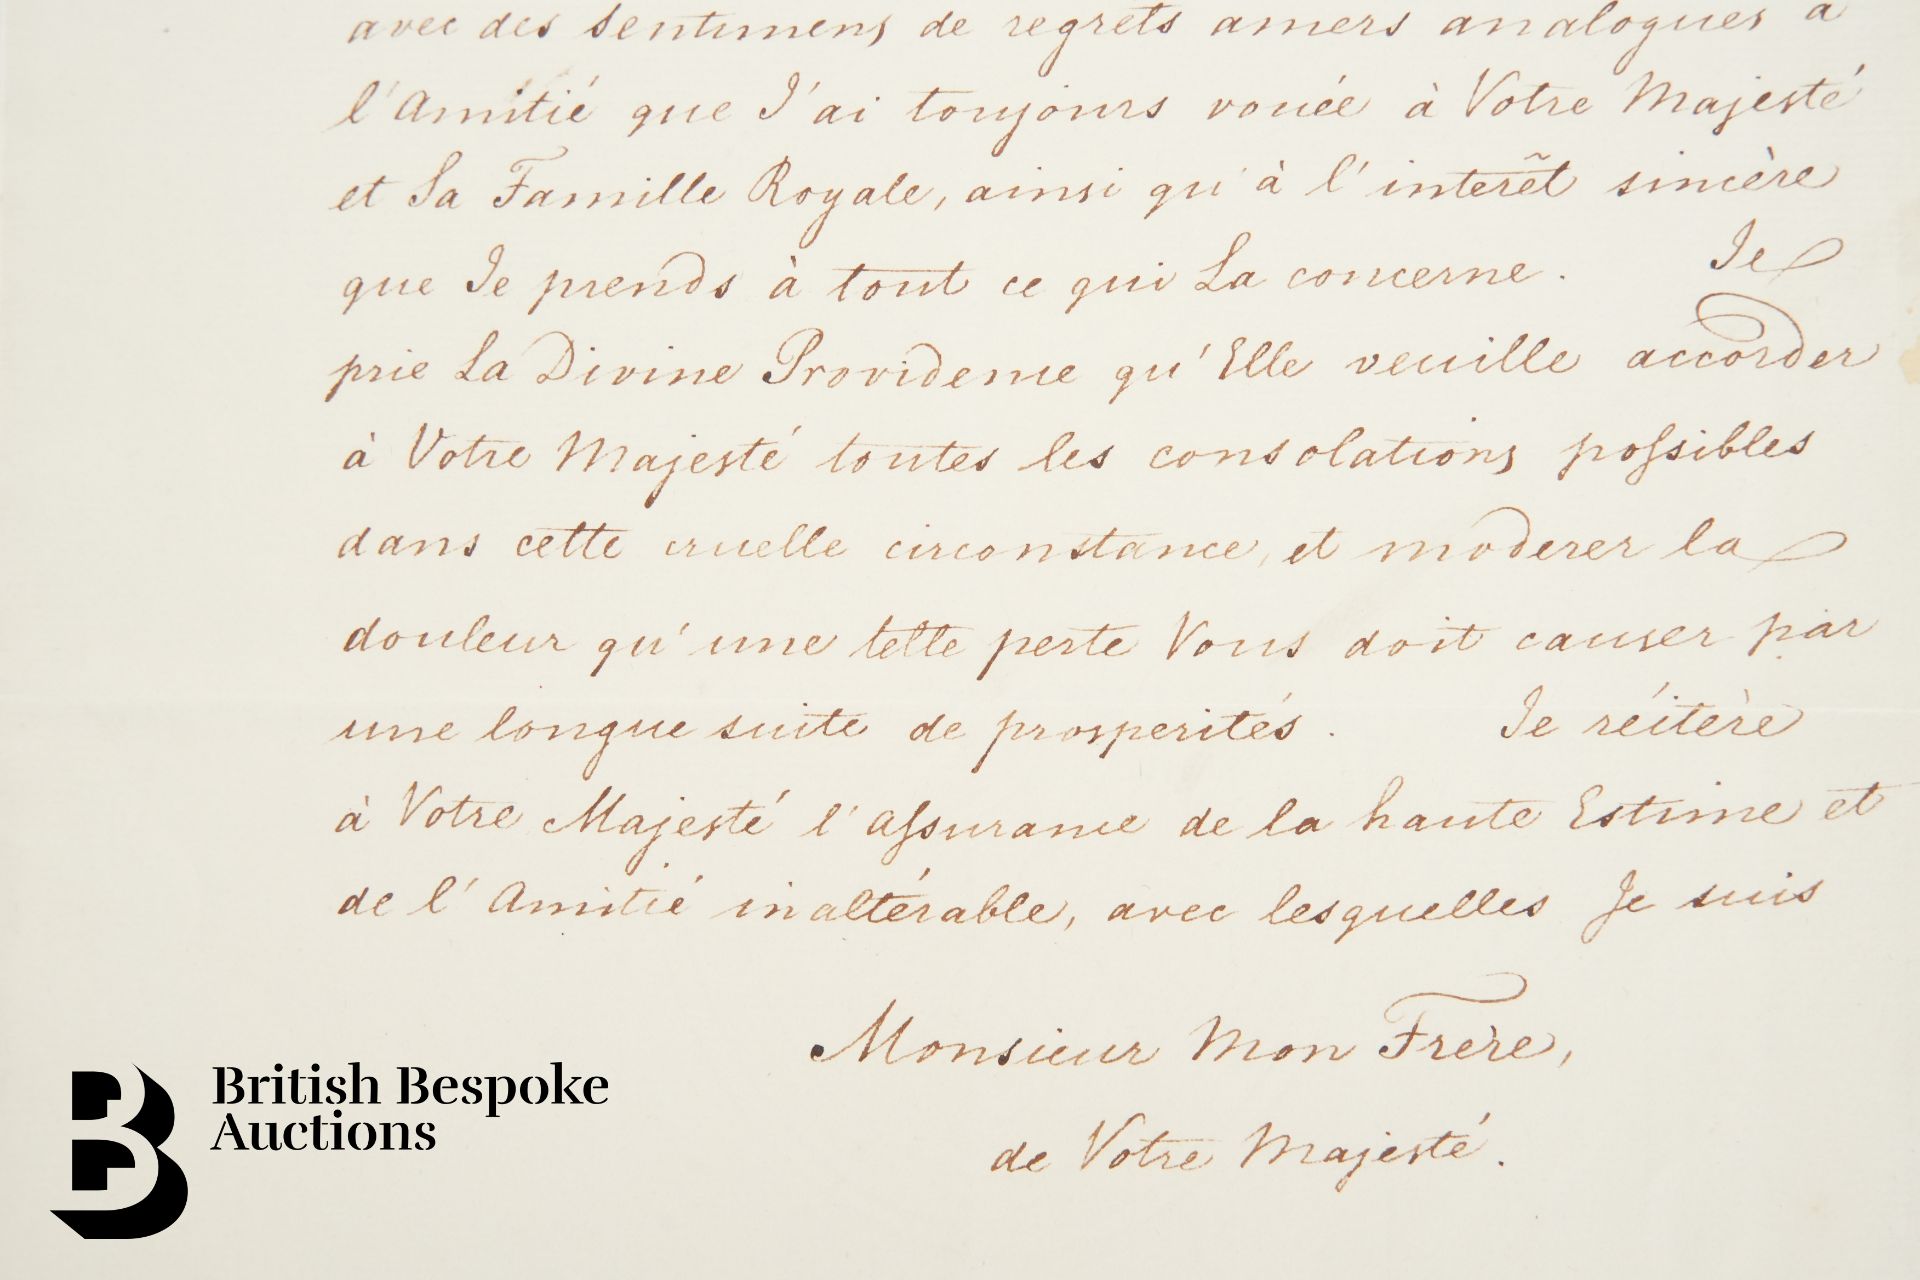 avec des sentimens de regrets amers analogues a
l'Amitié que J'ai toujours vouée à Votre Majesté
et Sa Famille Royale, ainsi qu'à l'interẽt sincère
que Je prends à tout ce qui La concerne. Je
prie La Divine Providence qu'Elle veuille accorder
à Votre Majesté toutes les consolations poſsibles
dans cette cruelle circonstance, et moderer la
douleur qu'une telle perte Vous doit causer par
une longue suite de prosperités. Je réitère
à Votre Majesté l'aſsurance de la haute Estime et
de l'Amitié inaltérable, avec lesquelles Je suis
Monsieur Mon Frère,
de Votre Majesté.
British Bespoke
Auctions